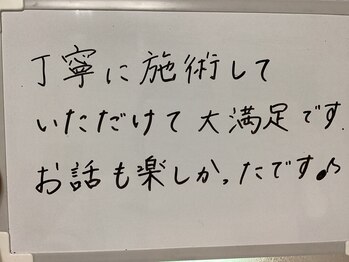 丁寧に施術して
いただけて大満足です.
お話も楽しかったです♪